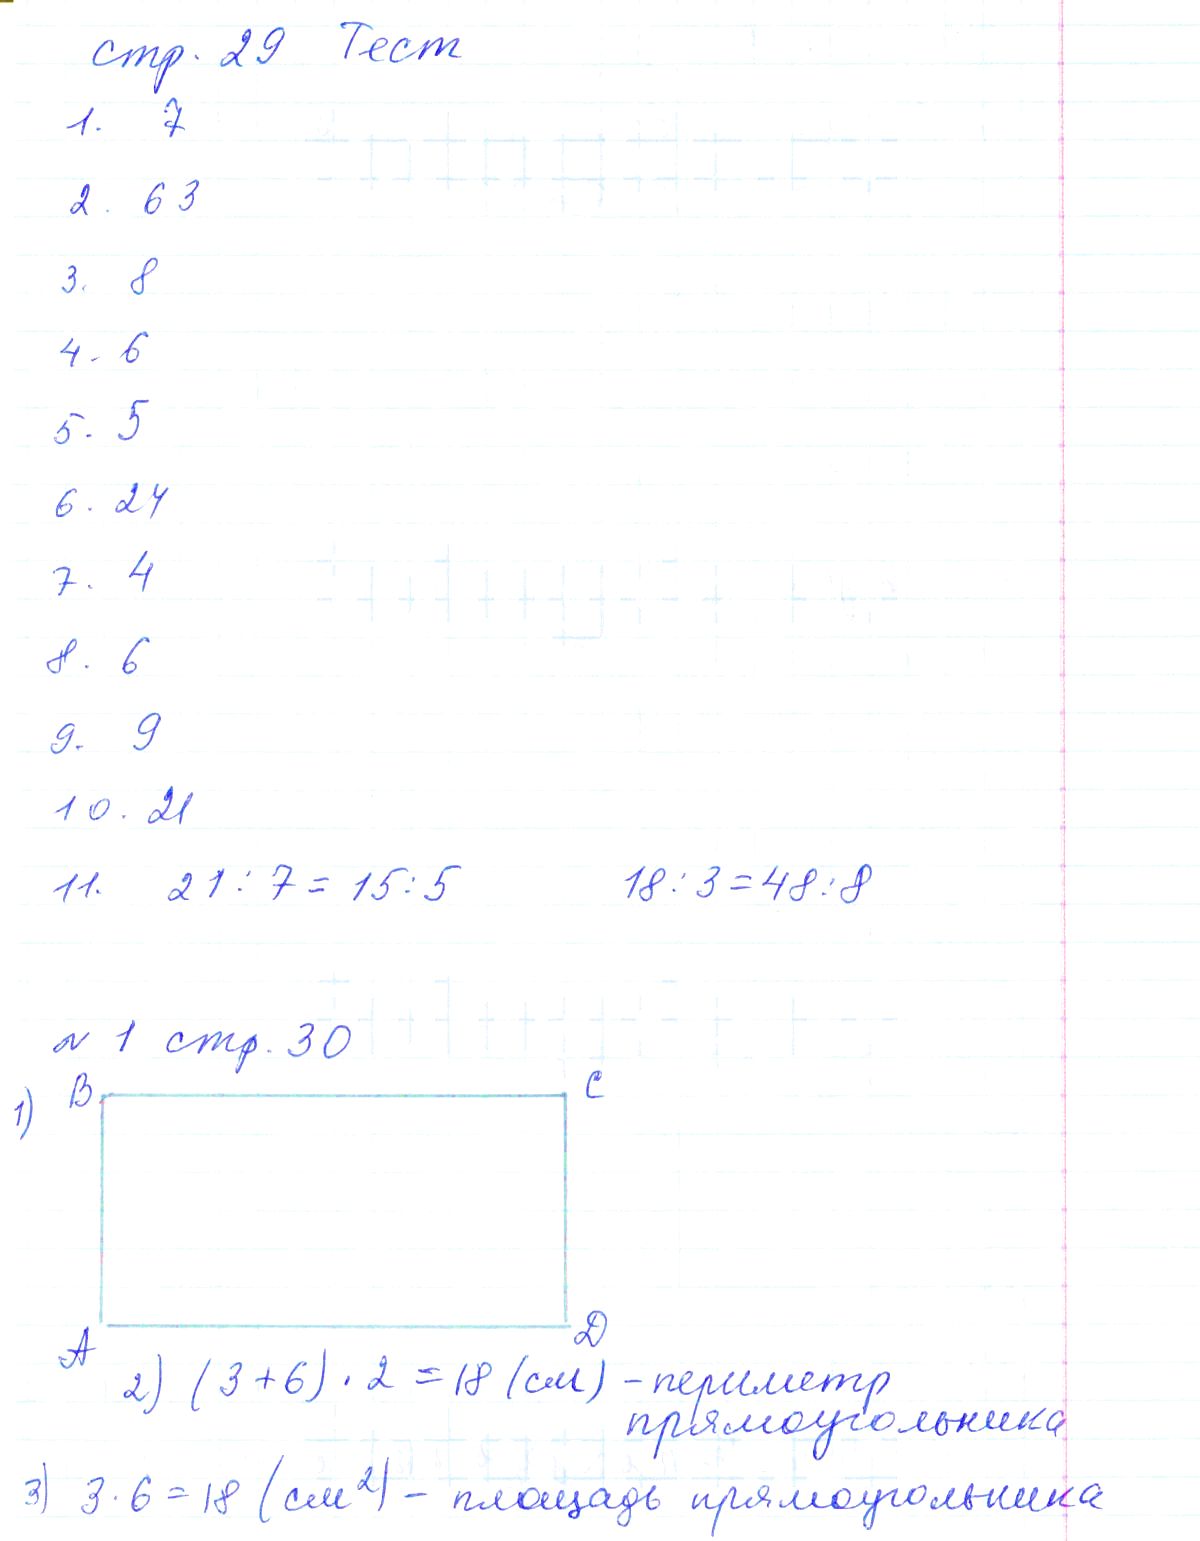 стр. 29 Тест
1. 7
2. 63
3. 8
4. 6
5. 5
6. 24
7. 4
8. 6
9. 9
10. 21
11. 21:7=15:5 18:3=48:8
№ 1 стр. 30
1) B C
A D
2) (3+6)·2=18 (см) - периметр
прямоугольника
3) 3·6=18 (см²) - площадь прямоугольника